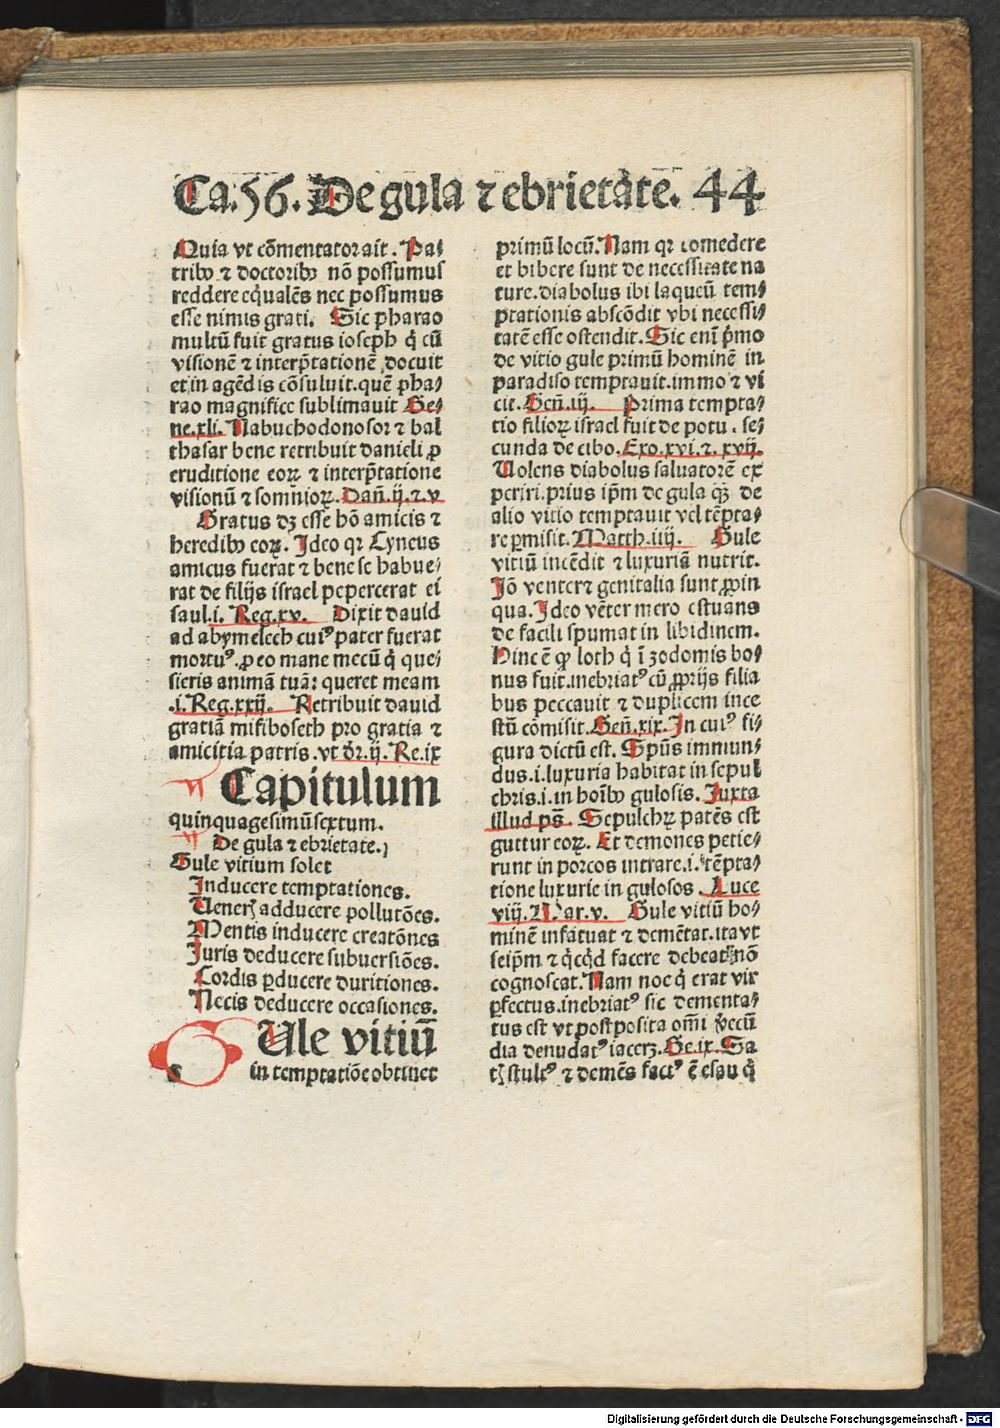 Ca.56. De gula ⁊ ebrietate. 44
Quia vt cōmentator ait. Pa⸗
trib⁹ ⁊ doctorib⁹ nō possumus
reddere eq̄ualēs nec possumus
esse nimis grati. Sic pharao
multū fuit gratus ioseph q̇ cū
visionē ⁊ interp̄tationē docuit
et in agēdis cōsuluit. quē pha⸗
rao magnifice sublimauit Ge⸗
ne.xli. Nabuchodonosor ⁊ bal
thasar bene retribuit danieli ꝓ
eruditione eoꝝ ⁊ interp̄tatione
visionū ⁊ somnioꝝ. Dañ.ij.⁊.v
Gratus dꝫ esse hō amicis ⁊
heredib⁹ eoꝝ. Ideo qꝛ Cyneus
amicus fuerat ⁊ bene se habue⸗
rat de filijs israel pepercerat ei
saul.i. Reg.xv. Dixit dauid
ad abymelech cui⁹ pater fuerat
mortu⁹. ꝓ eo mane mecū q̇ que⸗
sieris animā tuā: queret meam
.i.Reg.xxij. Retribuit dauid
gratiā mifiboseth pro gratia ⁊
amicitia patris. vt dr̄.ij. Re.ix
Capitulum
quinquagesimū sextum.
De gula ⁊ ebrietate.
Gule vitium solet
Inducere temptationes.
Venerꝭ adducere pollutōes.
Mentis inducere creatōnes
Iuris deducere subuersiōes.
Cordis ꝑducere duritiones.
Necis deducere occasiones.
Ule vitiū
in temptatiōe obtinet
primū locū. Nam qꝛ comedere
et bibere sunt de necessitate na
ture. diabolus ibi laqueū tem⸗
ptationis abscōdit vbi necessi⸗
tatē esse ostendit. Sic eni p̄mo
de vitio gule primū hominē in
paradiso temptauit. immo ⁊ vi
cit. Geñ.iij. Prima tempta⸗
tio filioꝝ israel fuit de potu. se⸗
cunda de cibo. Exo.xvi.⁊.xvij.
Uolens diabolus saluatorē ex
periri. prius ip̄m de gula qꝫ de
alio vitio temptauit vel tēpta⸗
re ꝑmisit. Matth.iiij. Gule
vitiū incēdit ⁊ luxuriā nutrit.
Iō venter ⁊ genitalia sunt ꝓpin
qua. Ideo vēter mero estuans
de facili spumat in libidinem.
Hinc ē ꝙ loth q̇ ī zodomis bo⸗
nus fuit. inebriat⁹ cū ꝓprijs filia
bus peccauit ⁊ duplicem ince
stū cōmisit. Geñ.xix. In cui⁹ fi⸗
gura dictū est. Sp̄us immun⸗
dus.i.luxuria habitat in sepul
chris.i.in hoīb⁹ gulosis. Iuxta
illud ps̄. Sepulchꝝ patēs est
guttur eoꝝ. Et demones petie⸗
runt in porcos intrare.i.tēpta⸗
tione luxurie in gulosos. Luce
viij. Mar.v. Gule vitiū ho⸗
minē infatuat ⁊ demētat. ita vt
seip̄m ⁊ q̇cq̇d facere debeat nō
cognoscat. Nam noe q̇ erat vir
ꝑfectus. inebriat⁹ sic dementa⸗
tus est vt postposita om̄i v̓ecū
dia denudat⁹ iacerꝫ. Ge.ix. Sa
tꝭ stult⁹ ⁊ demēs fact⁹ ē esau q̇
Digitalisierung gefördert durch die Deutsche Forschungsgemeinschaft - DFG